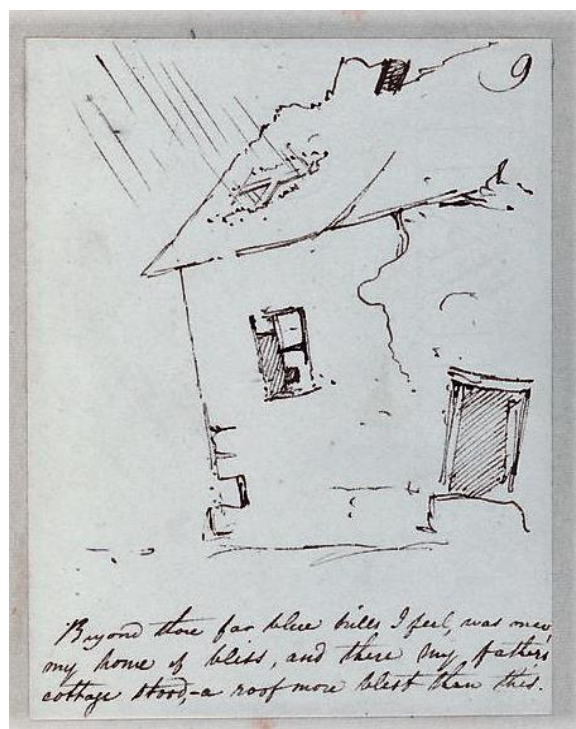 9
Beyond those far blue hills I feel, was once
my home of bliss, and there my father's
cottage stood,-a roof more blest than this.